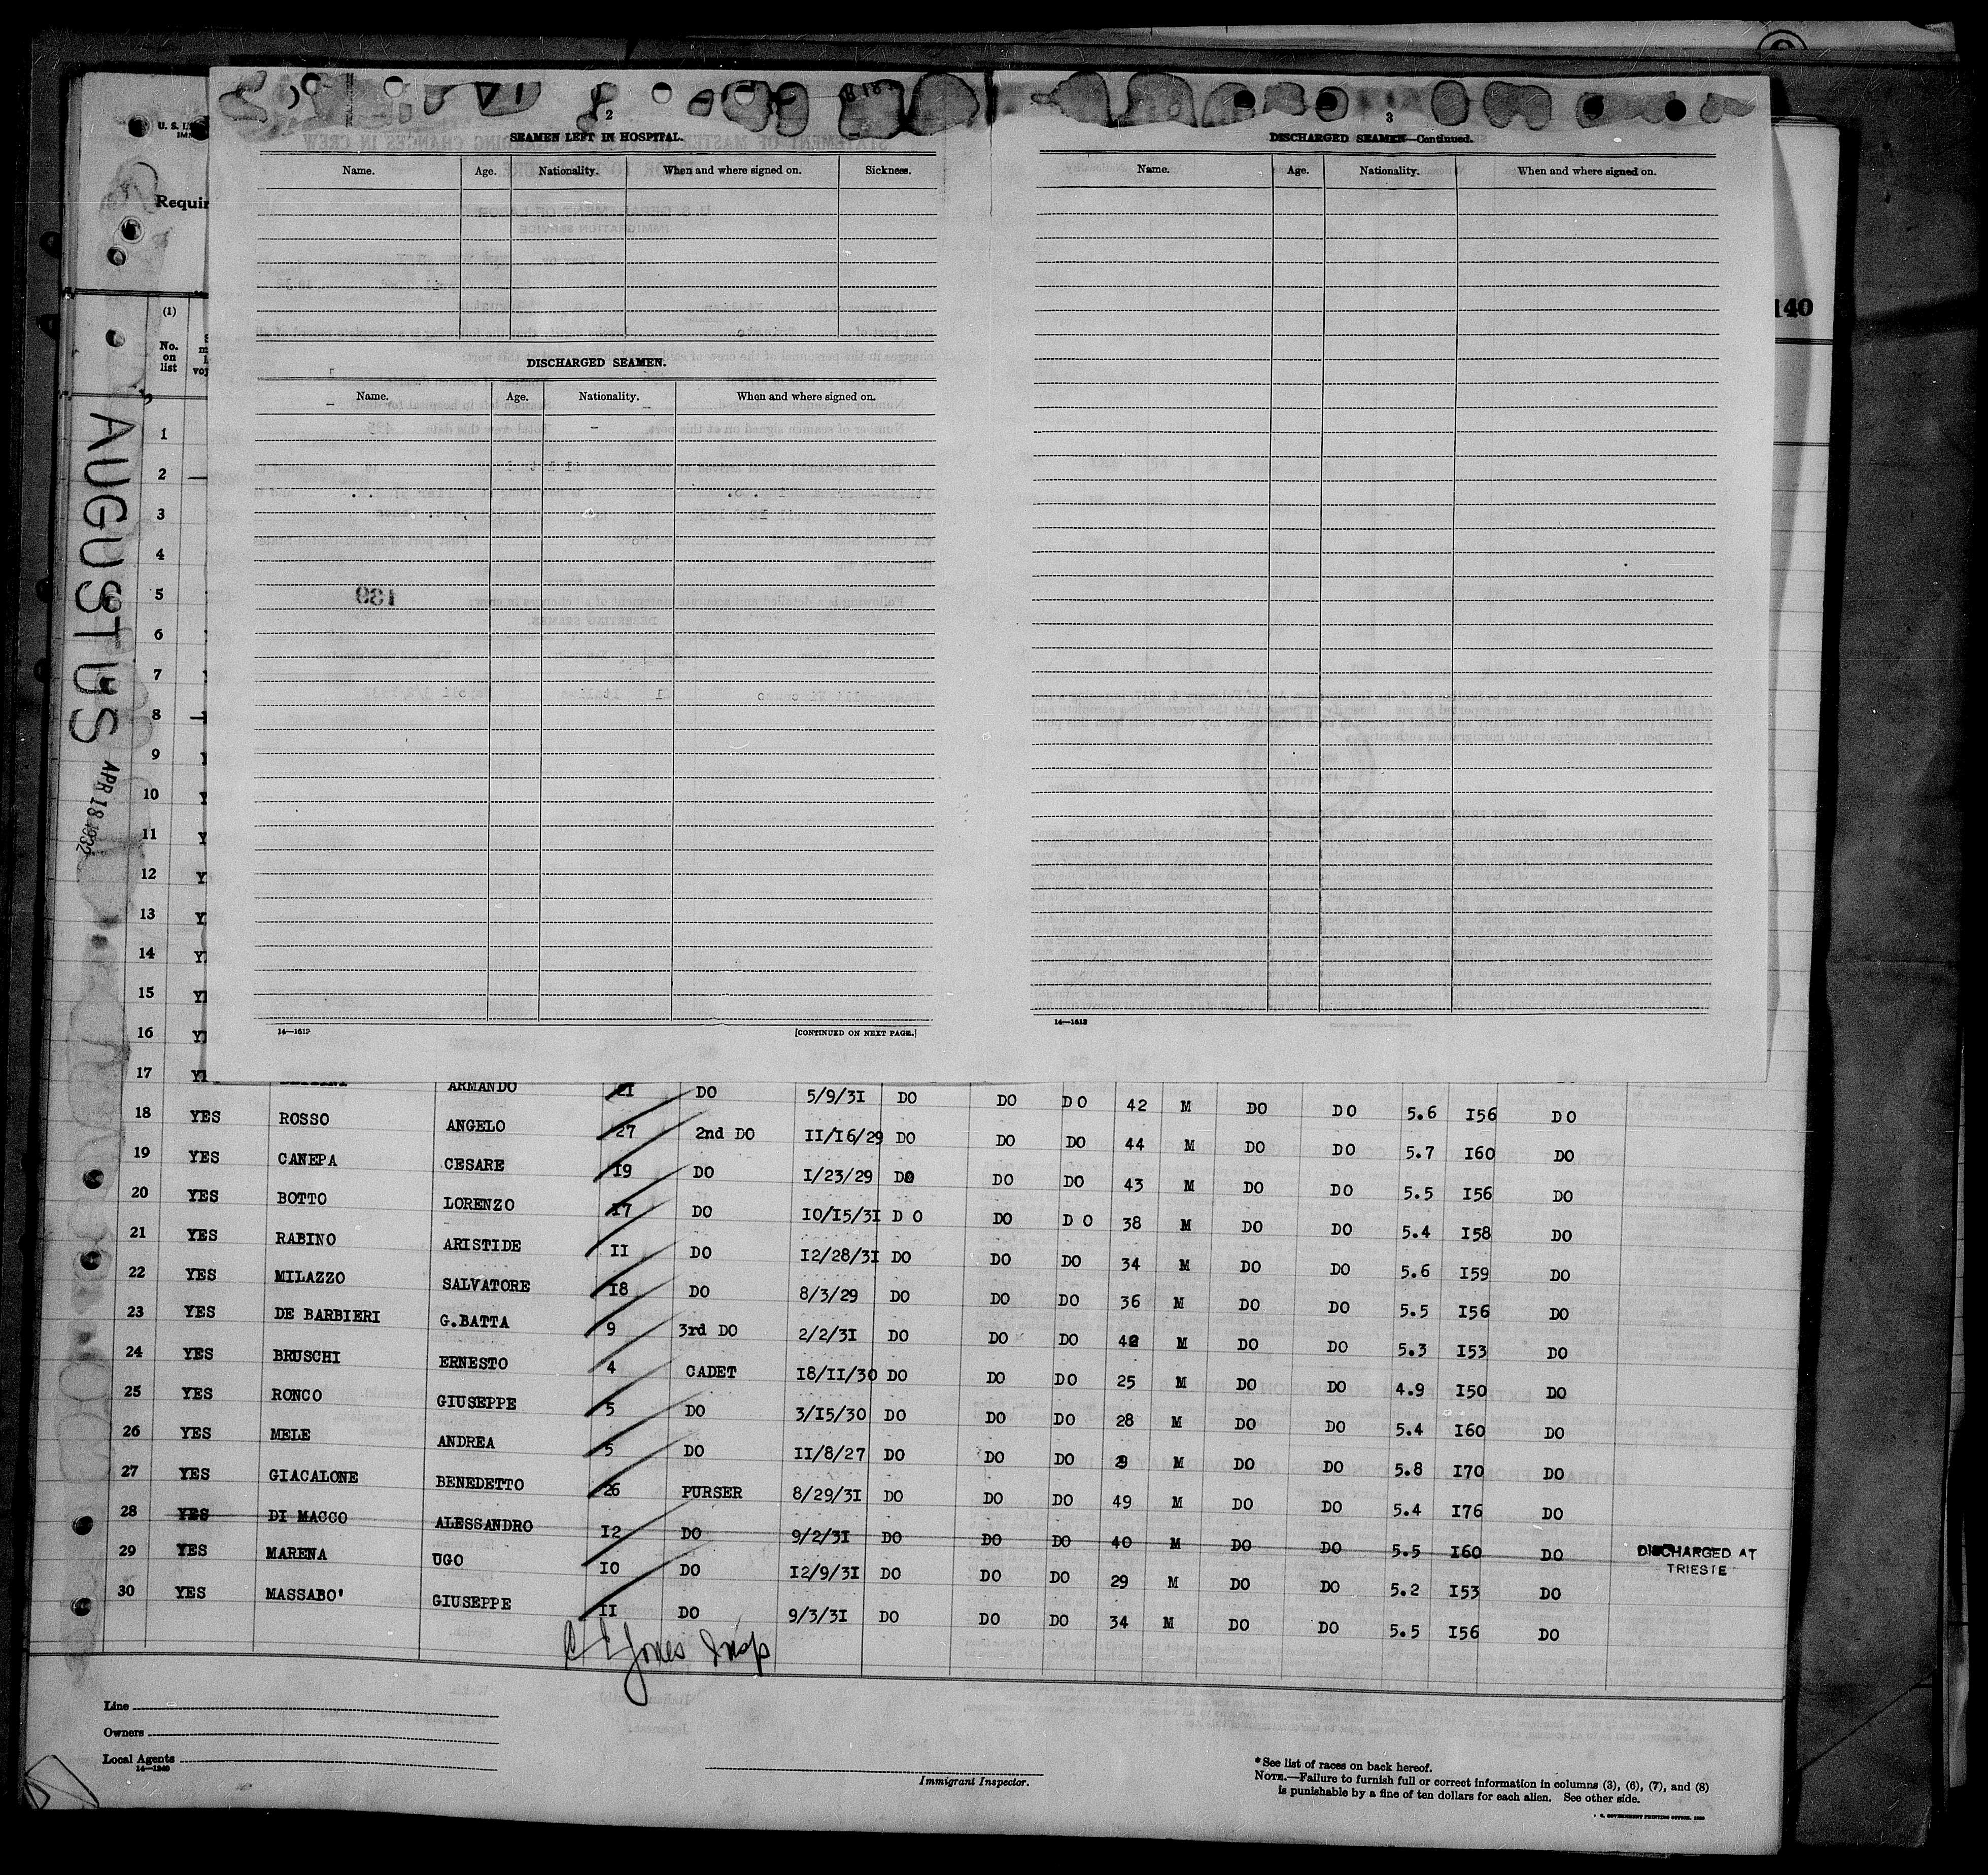 U. S.
Requir
140
(1)
No. on list
AUGUSTUS
APR 18 1932
2
SEAMEN LEFT IN HOSPITAL.
Name. Age. Nationality. When and where signed on. Sickness.
DISCHARGED SEAMEN.
Name. Age. Nationality. When and where signed on.
14—1612
[CONTINUED ON NEXT PAGE.]
3
DISCHARGED SEAMEN—Continued.
Name. Age. Nationality. When and where signed on.
14—1612
1
2
3
4
5
6
7
8
9
10
11
12
13
14
15
16
17 ARMANDO 21 DO 5/9/31 DO DO DO 42 M DO DO 5.6 156 DO
18 YES ROSSO ANGELO 27 2nd DO 11/16/29 DO DO DO 44 M DO DO 5.7 160 DO
19 YES CANEPA CESARE 19 DO 1/23/29 DO DO DO 43 M DO DO 5.5 156 DO
20 YES BOTTO LORENZO 17 DO 10/15/31 DO DO DO 38 M DO DO 5.4 158 DO
21 YES RABINO ARISTIDE 11 DO 12/28/31 DO DO DO 34 M DO DO 5.6 159 DO
22 YES MILAZZO SALVATORE 18 DO 8/3/29 DO DO DO 36 M DO DO 5.5 156 DO
23 YES DE BARBIERI G.BATTA 9 3rd DO 2/2/31 DO DO DO 42 M DO DO 5.3 153 DO
24 YES BRUSCHI ERNESTO 4 CADET 18/11/30 DO DO DO 25 M DO DO 4.9 150 DO
25 YES RONCO GIUSEPPE 5 DO 3/15/30 DO DO DO 28 M DO DO 5.4 160 DO
26 YES MELE ANDREA 5 DO 11/8/27 DO DO DO M DO DO 5.8 170 DO
27 YES GIACALONE BENEDETTO 26 PURSER 8/29/31 DO DO DO 49 M DO DO 5.4 176 DO
28 YES DI MACCO ALESSANDRO 12 DO 9/2/31 DO DO DO 40 M DO DO 5.5 160 DO DISCHARGED AT TRIESTE
29 YES MARENA UGO 10 DO 12/9/31 DO DO DO 29 M DO DO 5.2 153 DO
30 YES MASSABO' GIUSEPPE 11 DO 9/3/31 DO DO DO 34 M DO DO 5.5 156 DO
C E Jones Insp
Line
Owners
Local Agents
14—1240
Immigrant Inspector.
*See list of races on back hereof.
NOTE.—Failure to furnish full or correct information in columns (3), (6), (7), and (8)
is punishable by a fine of ten dollars for each alien. See other side.
GOVERNMENT PRINTING OFFICE